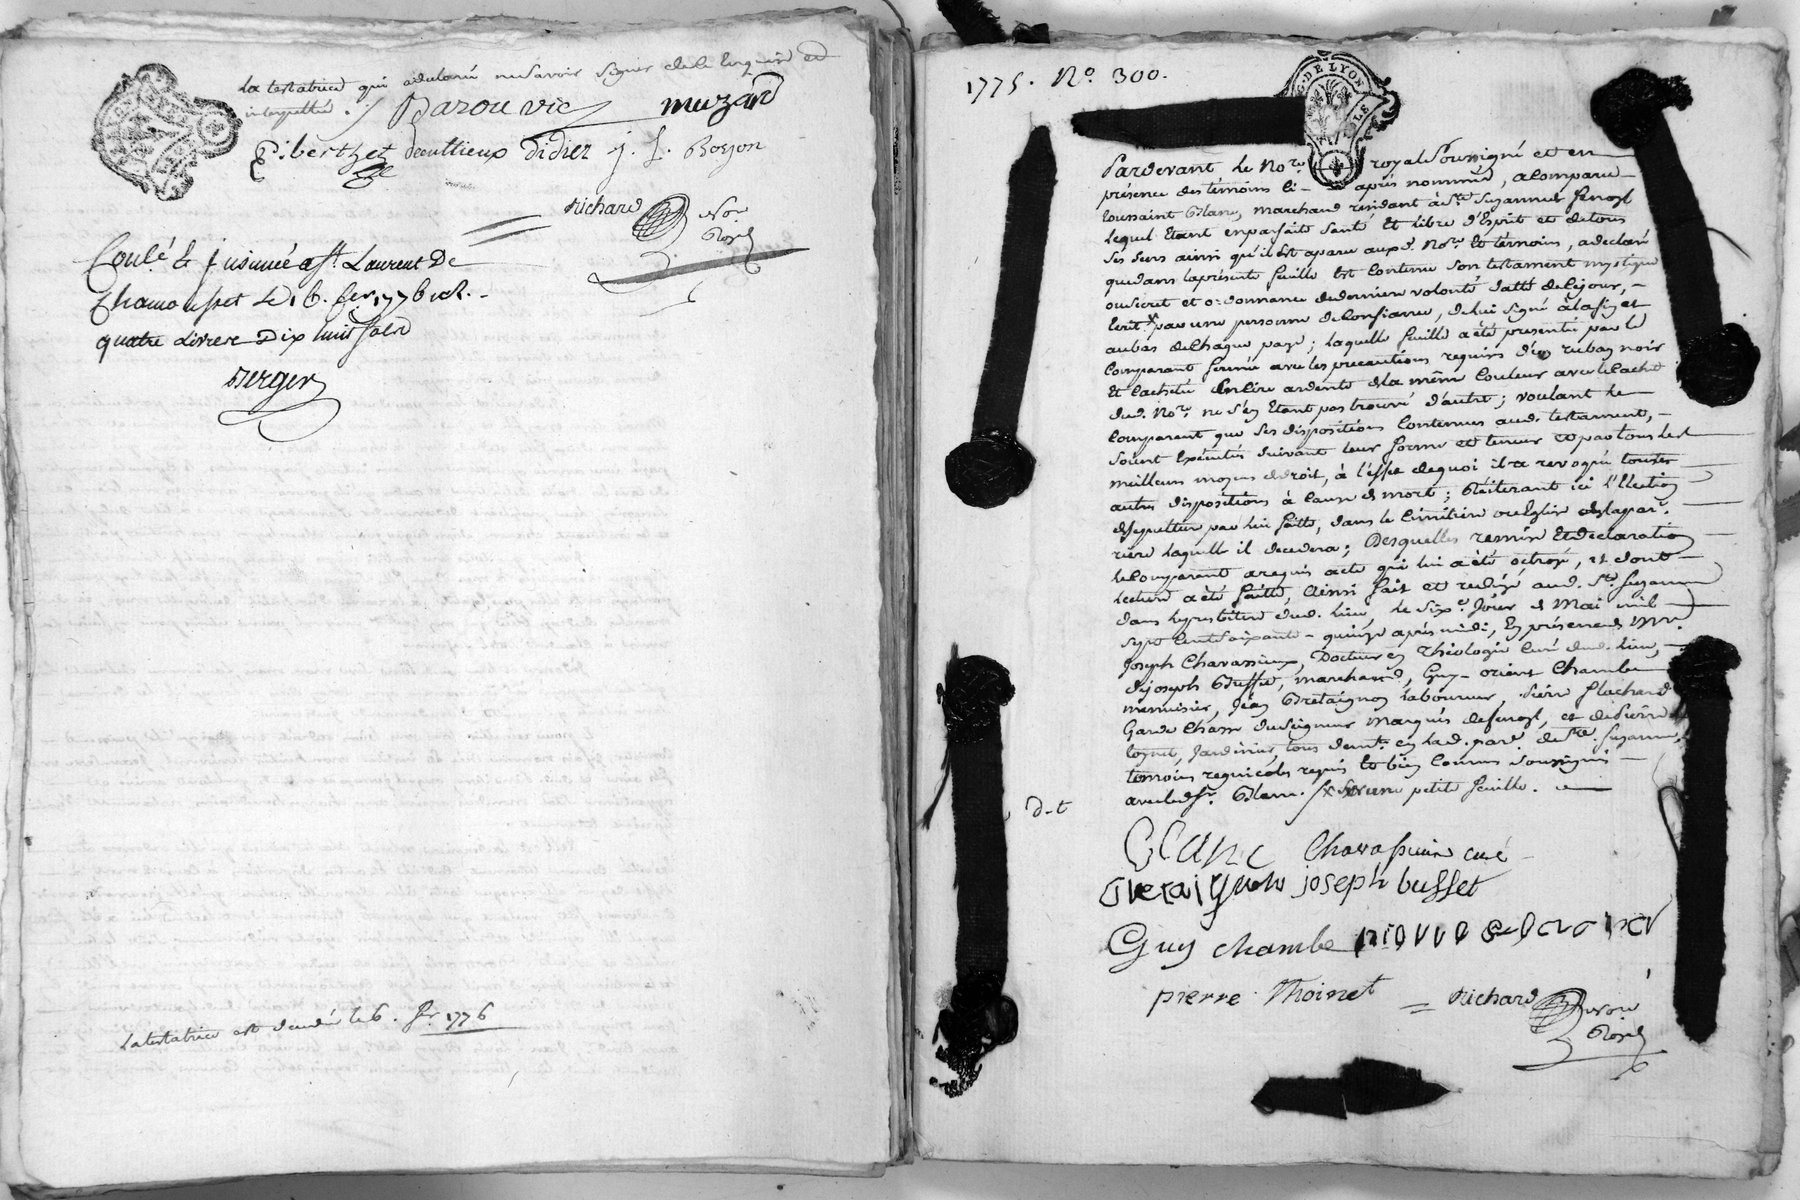 la testatrice qui a declaré ne savoir signer de ce enquise et
interpellée. /. Barou vic muzard
P. berthet decultieux Didier j. f. Boyron
Richard No.re
Royal
Conlé & jnsinué a St. Laurent De
Chamousset Le 16. fev. 1776 rec.
quatre Livres Dix huit sols
Berger
La testatrice est decedée le 6. fr. 1776
1775. No. 300.
G. DE LYON
Pardevant Le No.re royal Soussigné et en
présence des témoins ci- après nommés, a Comparu
toussaint Blanc, marchand residant à Ste. Suzanne
Lequel Etant en parfaite Santé Et Libre d'Esprit et de tous
Ses Sens ainsi qu'il Est aparu aux d. No.re Et témoins, a declaré
que dans la présente feuille Est Contenu Son testament mystique
ou Secret et ordonnance de derniere volonté datté de Ce jour,
Ecrit x par une personne de Confiance, de lui Signé à la fin et
au bas de Chaque page; laquelle feuille a été presentée par le
Comparant fermée avec les precautions requises d'un ruban noir
Et Cacheté En Cire ardente de la même Couleur avec le Cachet
dud. No.re ne s'en Etant pas trouvé d'autre; voulant le
Comparant que Ses dispositions Contenues aud. testament,
Soient Exécutés Suivant leur forme et teneur et par tous les
meilleurs moyens de droit, à l'effet de quoi il a revoqué toutes
autres dispositions à Cause de mort; Réiterant ici l'Election
de sepulture par Lui faitte, dans le Cimitiere ou Eglise de la par.
Laquelle il decedera; Desquelles remise Et declaration
Le Comparant a requis acte qui lui a été octroyé, et dont
Lecture a été faitte, ainsi fait et redigé aud. Ste. Suzanne
dans le presbitere dud. Lieu, Le Six.e Jour de Mai mil
Sept Cent Soixante-quinze après midi, En présence de Mre.
Joseph Chavassieux, Docteur en théologie Curé dud. Lieu,
de joseph Buffet, marchand, Guy Chambe
menuisier, Jean Bretaignon laboureur, flachard
Garde Chasse du Seigneur Marquis de, et de Pierre
jardinier, tous demt. en lad. par. de Ste. Suzanne,
temoins requis Et bien Connus Soussignés
avec led. Sr. Blanc. /x Sur une petite feuille.
d-t
Blanc Chavassieux curé
Bretaignon joseph buffet
Guy chambe
pierre Thoinet Richard No.re
Royal